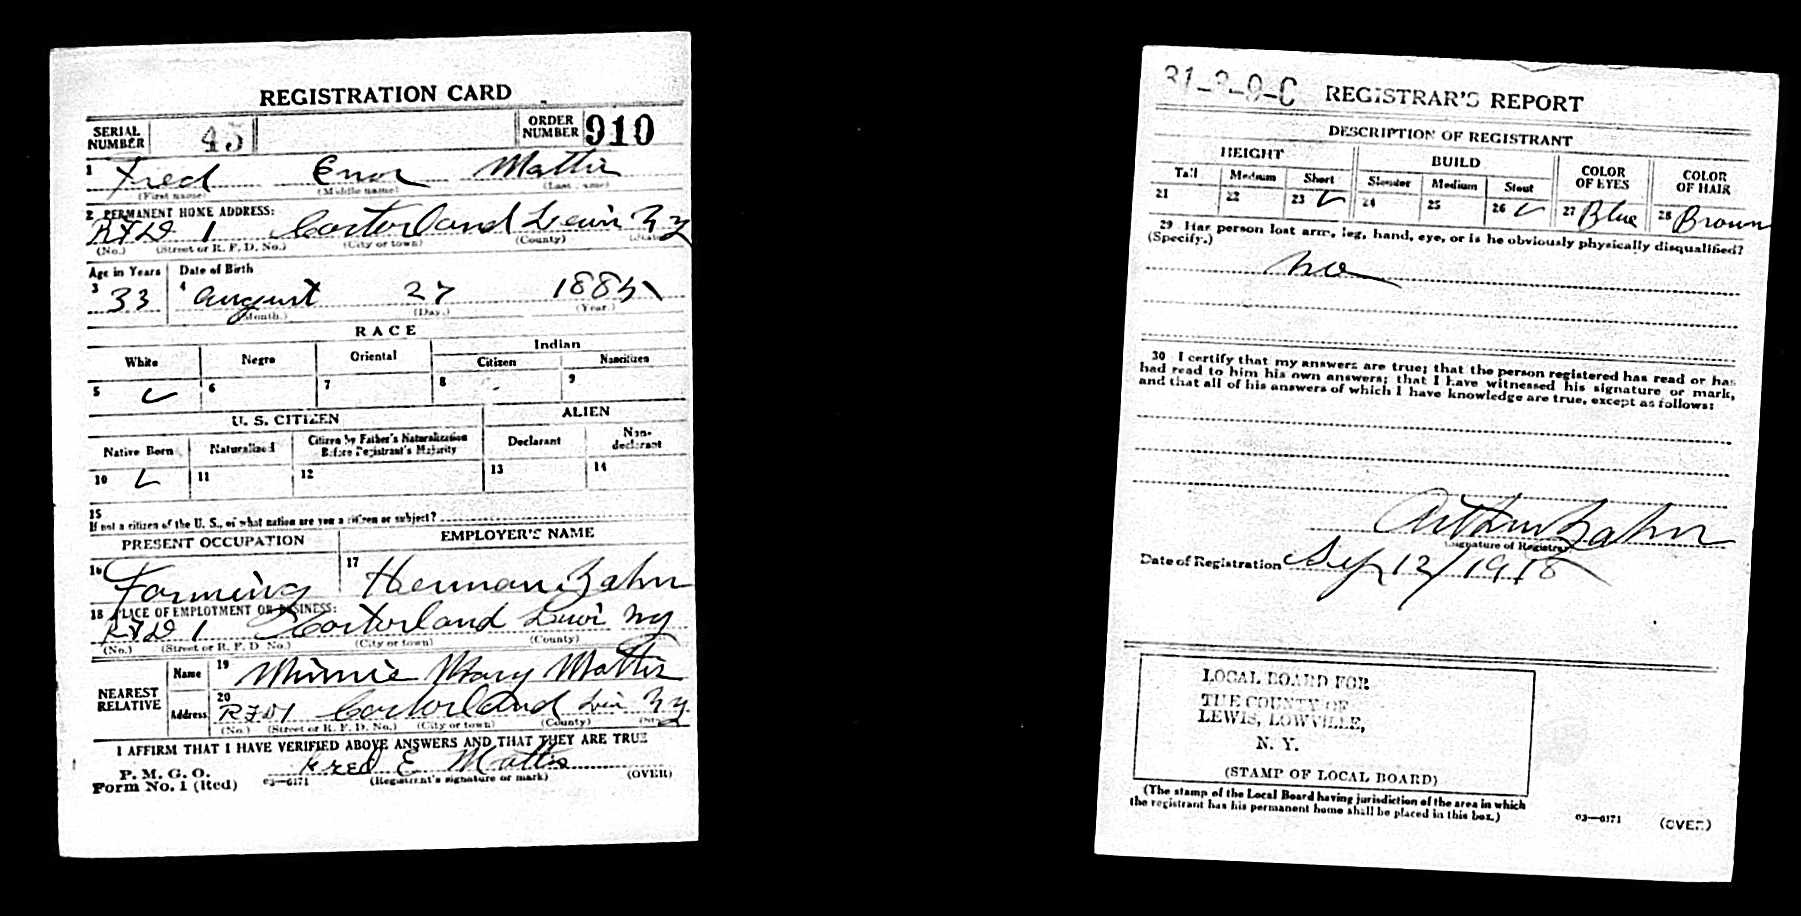 REGISTRATION CARD
SERIAL NUMBER 45 ORDER NUMBER 910
1 Fred Enor Mattis
(First name) (Middle name) (Last name)
2 PERMANENT HOME ADDRESS:
RFD 1 Castorland Lewis NY
(No.) (Street or R. F. D. No.) (City or town) (County) (State)
Age in Years Date of Birth
3 33 4 August 27 1885
(Month.) (Day.) (Year.)
RACE
White Negro Oriental Indian
Citizen Noncitizen
5 ✓ 6 7 8 9
U. S. CITIZEN ALIEN
Native Born Naturalized Citizen by Father's Naturalization Before Registrant's Majority Declarant Non-declarant
10 ✓ 11 12 13 14
15
If not a citizen of the U. S., of what nation are you a citizen or subject?
PRESENT OCCUPATION EMPLOYER'S NAME
16 Farming 17 Herman Zahn
18 PLACE OF EMPLOYMENT OR BUSINESS:
RFD 1 Castorland Lewis NY
(No.) (Street or R. F. D. No.) (City or town) (County)
NEAREST RELATIVE
Name 19 Minnie Mary Mattis
Address 20 RFD 1 Castorland Lewis NY
(No.) (Street or R. F. D. No.) (City or town) (County) (State)
I AFFIRM THAT I HAVE VERIFIED ABOVE ANSWERS AND THAT THEY ARE TRUE
P. M. G. O.
Form No. 1 (Red) 03—6171 Fred E Mattis
(Registrant's signature or mark) (OVER)
31-3-9-C REGISTRAR'S REPORT
DESCRIPTION OF REGISTRANT
HEIGHT BUILD COLOR OF EYES COLOR OF HAIR
Tall Medium Short Slender Medium Stout
21 22 23 ✓ 24 25 26 ✓ 27 Blue 28 Brown
29 Has person lost arm, leg, hand, eye, or is he obviously physically disqualified?
(Specify.)
no
30 I certify that my answers are true; that the person registered has read or has
had read to him his own answers; that I have witnessed his signature or mark,
and that all of his answers of which I have knowledge are true, except as follows:
Arthur Zahn
(Signature of Registrar)
Date of Registration Sep 12/1918
LOCAL BOARD FOR
THE COUNTY OF
LEWIS, LOWVILLE,
N. Y.
(STAMP OF LOCAL BOARD)
(The stamp of the Local Board having jurisdiction of the area in which
the registrant has his permanent home shall be placed in this box.)
03—6171 (OVER)